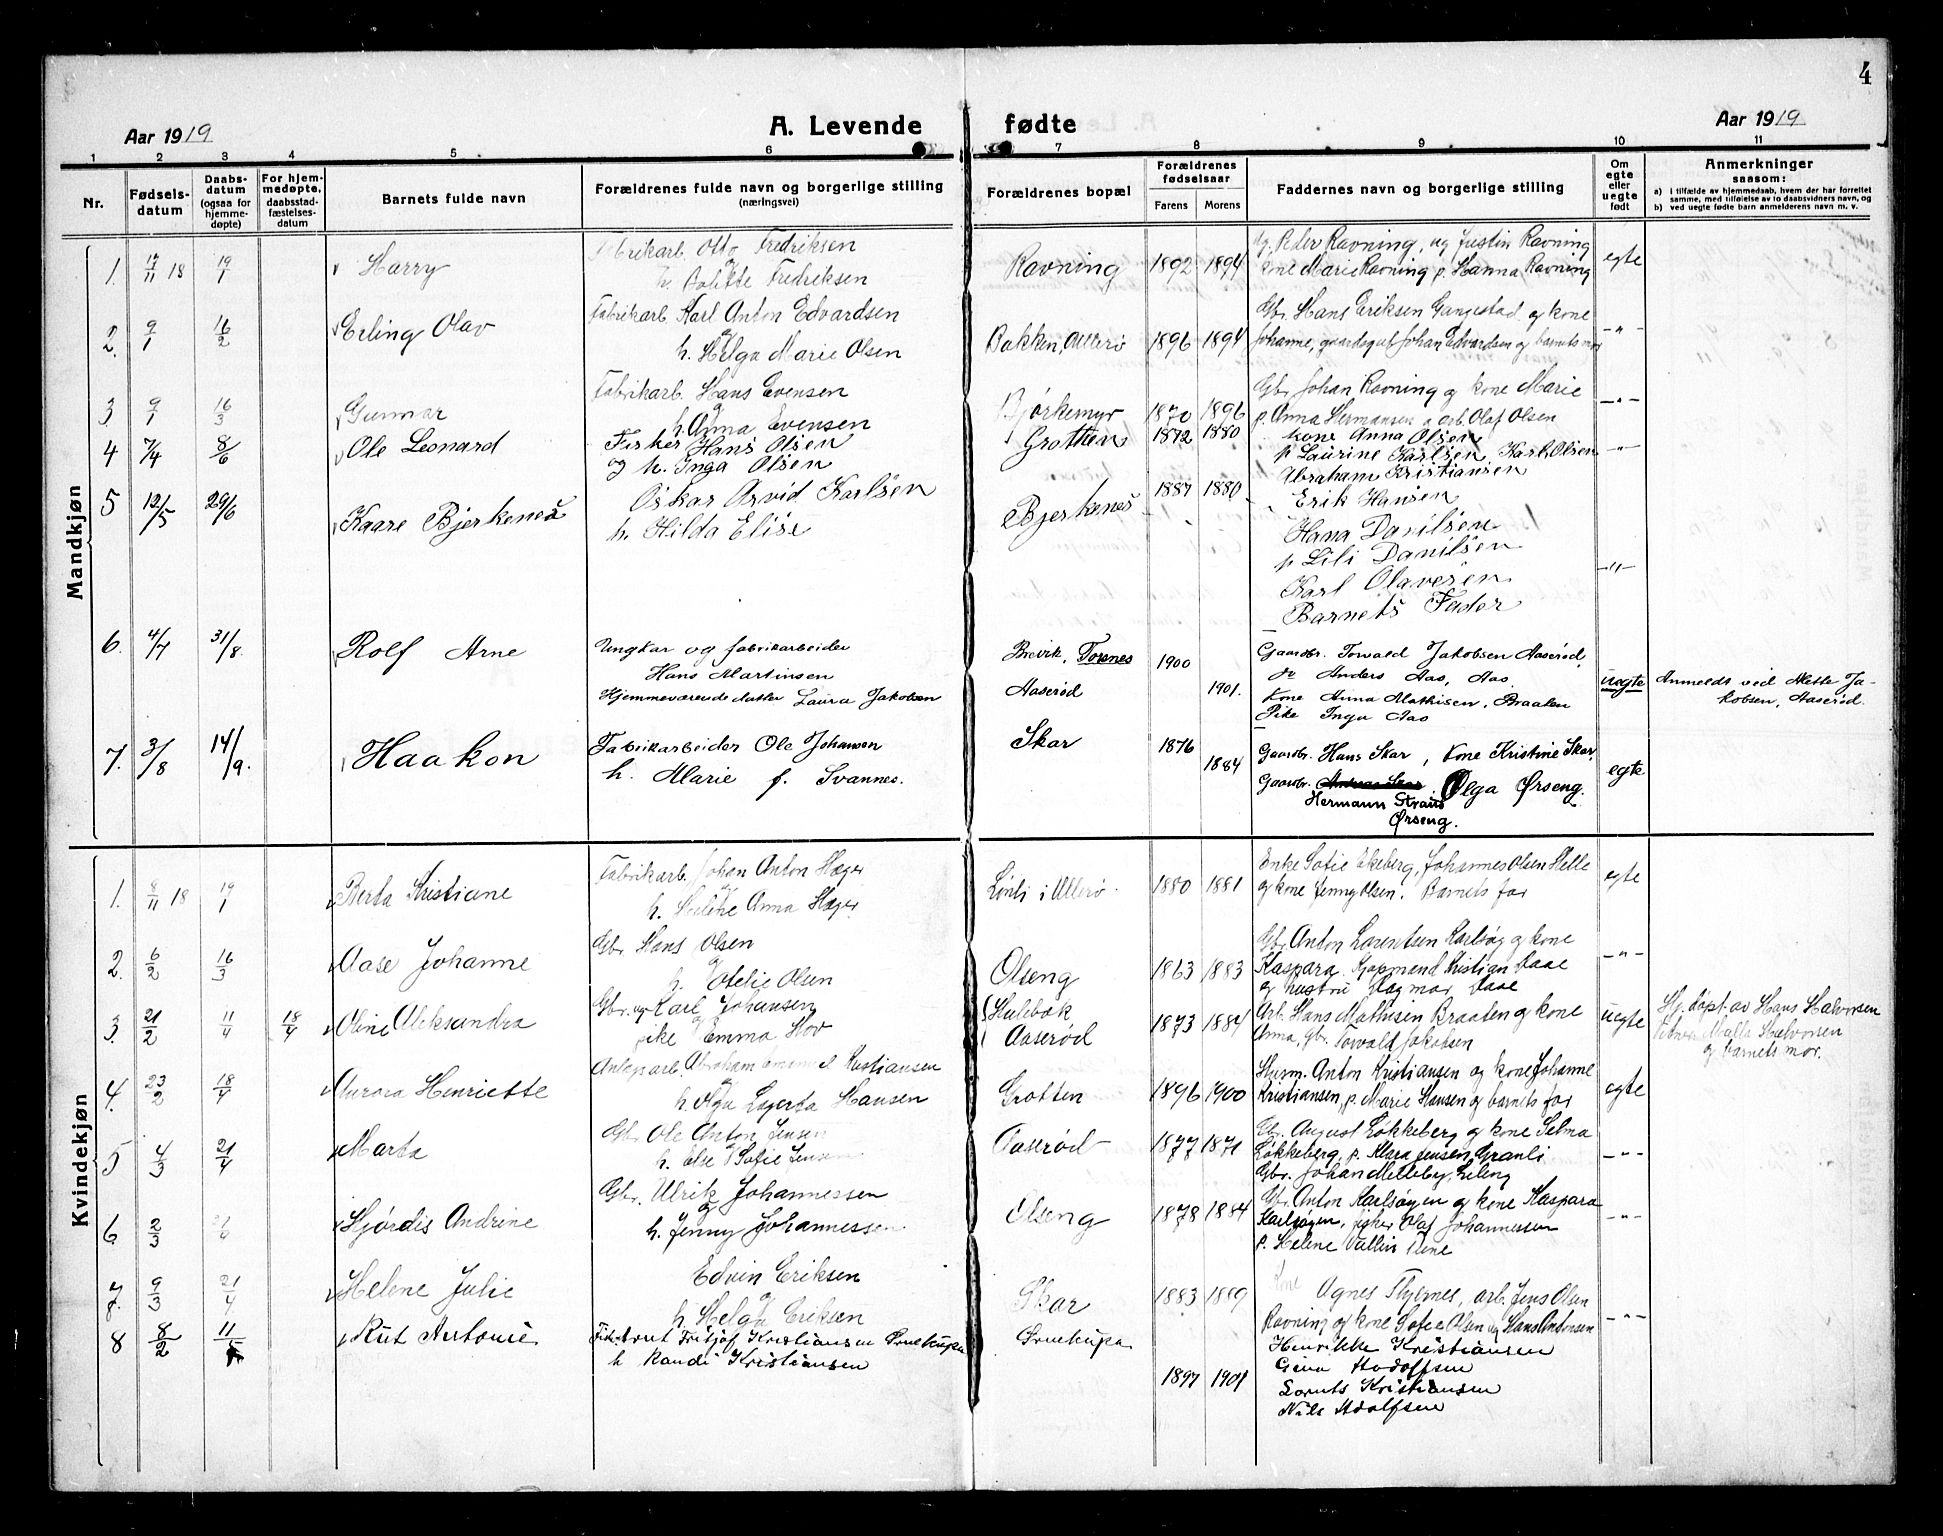 4
Aar 1919 A. Levende fødte Aar 1919
1 2 3 4 5 6 7 8 9 10 11
Nr. Fødselsdatum Daabsdatum (ogsaa for hjemmedøpte) For hjemmedøpte, daabsstadfæstelsesdatum Barnets fulde navn Forældrenes fulde navn og borgerlige stilling (næringsvei) Forældrenes bopæl Forældrenes fødselsaar Farens Morens Faddernes navn og borgerlige stilling Om egte eller uegte født Anmerkninger saasom:
a) i tilfælde av hjemmedaab, hvem der har forrettet samme, med tilføielse av to daabsvidners navn, og
b) ved uegte fødte barn anmelderens navn m. v.
Mandkjøn
1. 17/11 18 19/1 Harry Fabrikarb. Otto Fredriksen Ravning 1892 1894 Peder Ravning, ug Justin Ravning egte
og h. Fredriksen kone Marie Ravning p. Hanna Ravning
2. 9/1 16/2 Erling Olav Fabrikarb. Karl Anton Edvardsen Bakken, Ullerø 1896 1894 Gbr. Hans Eriksen Gangestad og kone -"-
og h. Helga Marie Olsen Johanne, Johan Edvardsen og barnets mor
3 9/1 16/3 Gunnar Fabrikarb. Hans Evensen Bjørkemyr 1870 1896 Gbr. Johan Ravning og kone Marie -"-
og h. Anna Evensen p. Anna Hermansen, arb. Olaf Olsen
4 7/4 8/6 Ole Leonard Fisker Hans Olsen Grotten 1872 1880 Kone Anna Olsen -"-
og h. Inga Olsen p Laurine Karlsen, Karl Olsen
Abraham Kristiansen
5 12/5 29/6 Kaare Bjerkenes Oskar Arvid Karlsen Bjerkenes 1887 1880 Erik Hansen
h. Hilda Elise Hana Danilsen
p Lili Danilsen -"-
Karl Olavesen
Barnets Fader
6. 4/7 31/8. Rolf Arne Ungkar og fabrikarbeider Brevik, Torsnes 1900 Gaardbr. Torvald Jakobsen Aaserød,
Hans Martinsen do Anders Aas, Aas. uegte Anmeldt ved Mette Ja-
Hjemmeværende datter Laura Jakobsen Aaserød 1901. Kone Anna Mathisen, Braaten kobsen, Aaserød.
Pike Inga Aas
7. 3/8 14/9. Haakon Fabrikarbeider Ole Johansen Skar 1876 Gaardbr. Hans Skar, Kone Kristine Skar,
h. Marie f. Svannes. 1884 Gaardbr. Olga Ørseng. egte
Hermann Straus
Ørseng.
Kvindekjøn
1. 8/11 18 19/1 Berta Kristiane Fabrikarb. Johan Anton Hager i Ullerø. 1880 1881 Enke Sofie Ekeberg, Johannes Olsen Helle egte
og h. Anna Hager og kone Jenny Olsen. Barnets far
2. 6/2 16/3 Aase Johanne Gbr. Hans Olsen Olseng 1863 1883 Gbr. Anton Larentsen Karlsøy og kone -"-
og h. Otelie Olsen Kaspara. Kjøpmand Kristian Faae
og hustru Dagmar Faae
3. 21/2 11/4 18/4 Oline Aleksandra Gbr. og Karl Johansen Hulebak 1873 1884 Arb. Hans Mathisen Braaten og kone uegte Hj. døpt av Hans Halvorsen
pike Emma Hov Aaserød Anna, Gbr. Torvald Jakobsen Halvorsen
og barnets mor.
4. 23/2 18/4 Aurora Henriette Abraham Kristiansen Grotten 1896 1900 Anton Kristiansen og kone Johanne egte
og h. Olga Hansen Kristiansen, p. Marie Hansen og barnets far
5 4/3 21/4 Marta Gbr. Ole Anton Jensen Aaserød 1877 1871 Gbr. August Løkkeberg og kone Selma -"-
h. Else Sofie Løkkeberg, p. Klara Jensen Granli
Gbr. Johan
6. 2/3 Hjørdis Andrine Gbr. Ulrik Johannessen Olseng 1878 1884 Gbr. Anton Karlsøyen og kone Kaspara -"-
og h. Jenny Johannessen Karlsøyen, fisker Olaf Johannessen
p. Helene Vallin
7. 9/3 21/4 Helene Julie Edvin Eriksen Skar 1883 1889 Agnes Thyrnes, arb. Jens Olsen -"-
og h. Helga Eriksen Ravning og kone Sofie Olsen ug Hans Antonsen
8 8/2 11/5 Rut Antonie Fritjof Kristiansen Ørnekupa Ørnekupa Henrikke Kristiansen
h Randi Kristiansen 1897 1901 Gina Hadolfsen
Kristiansen
Nils Adolfsen